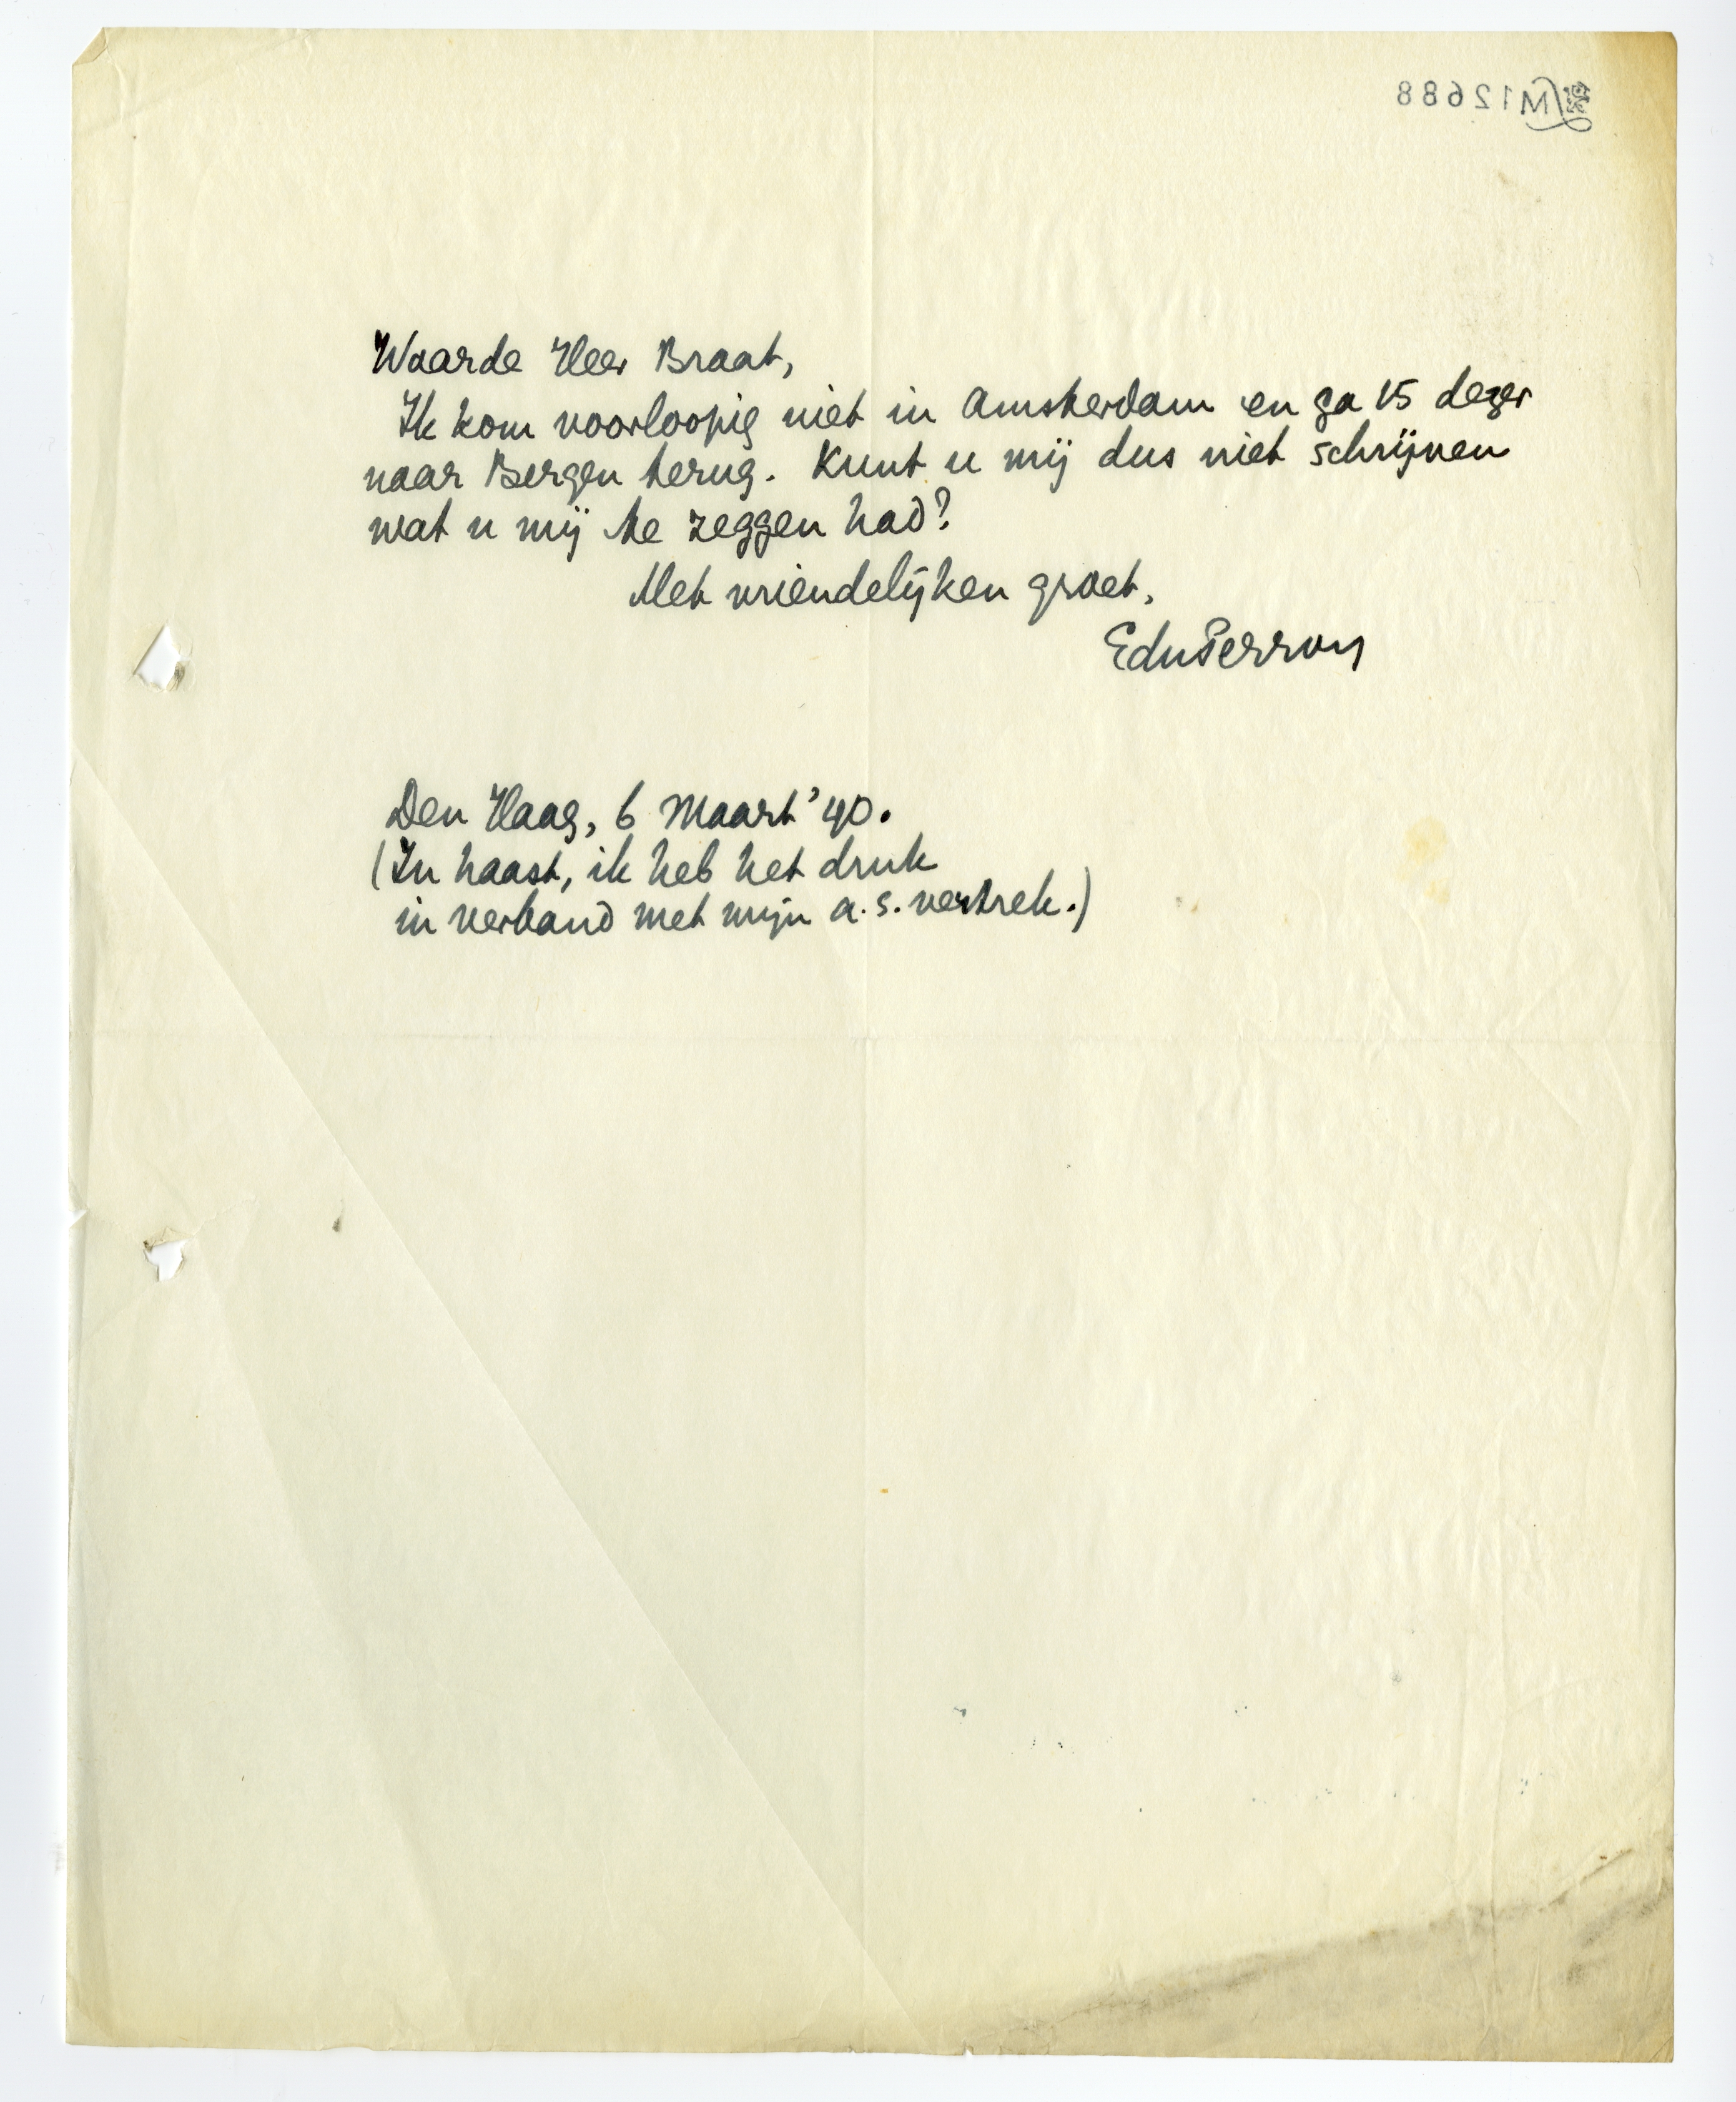 M12688
Waarde Heer Braat,
Ik kom voorloopig niet in Amsterdam en ga 15 dezer
naar Bergen terug. Kunt u mij dus niet schrijven
wat u mij te zeggen had?
Met vriendelijken groet,
EduPerron
Den Haag, 6 Maart '40.
(In haast, ik heb het druk
in verband met mijn a.s. vertrek.)